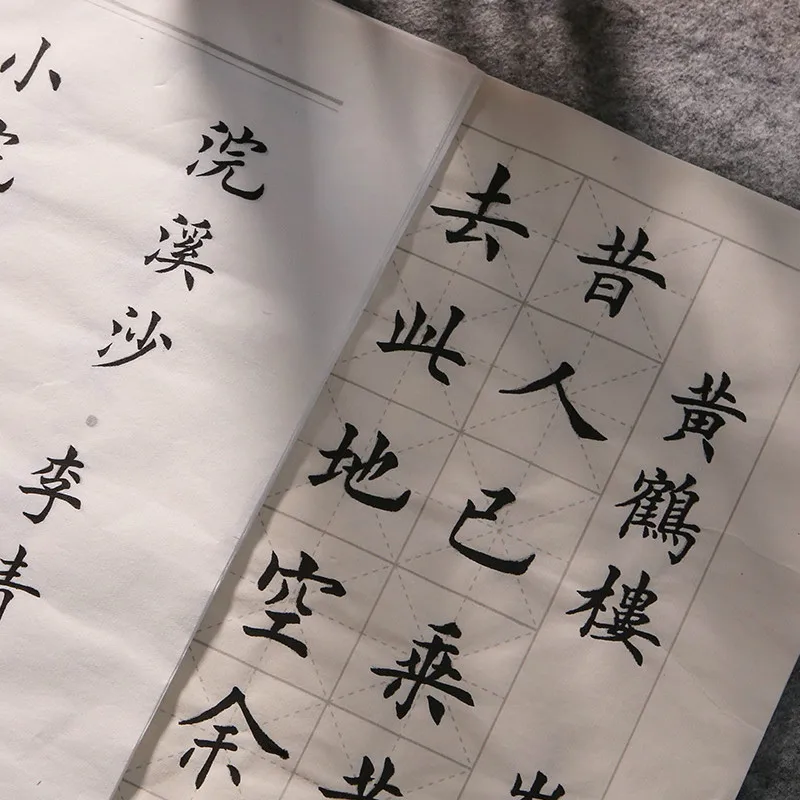 黄鶴樓
昔人已乘
去此地空余
浣溪沙·李
小